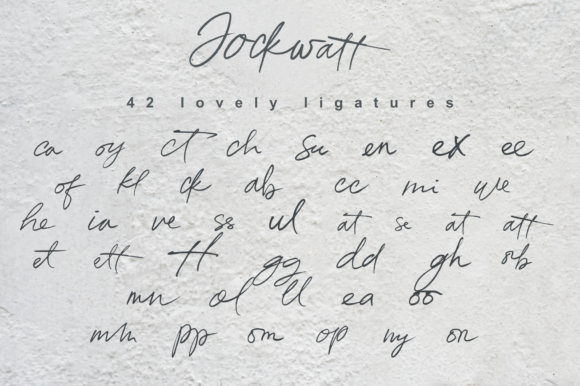 Jockwatt
42 lovely ligatures
ca oy ct ch su en ex ee
of kl ck ab cc mi we
he ia ve ss ul at se at att
et ett tt gg dd gh rb
mn ol ll ea oo
mm pp om op ny on